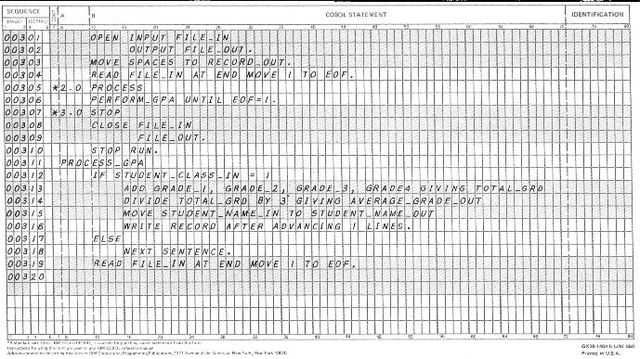 SEQUENCE
A B COBOL STATEMENT IDENTIFICATION
00301 OPEN INPUT FILE_IN
00302 OUTPUT FILE_OUT.
00303 MOVE SPACES TO RECORD_OUT.
00304 READ FILE_IN AT END MOVE 1 TO EOF.
00305 *2.0 PROCESS
00306 PERFORM_GPA UNTIL EOF=1.
00307 *3.0 STOP
00308 CLOSE FILE_IN
00309 FILE_OUT.
00310 STOP RUN.
00311 PROCESS_GPA
00312 IF STUDENT_CLASS_IN = 1
00313 ADD GRADE_1, GRADE_2, GRADE_3, GRADE4 GIVING TOTAL_GRD
00314 DIVIDE TOTAL_GRD BY 3 GIVING AVERAGE_GRADE_OUT
00315 MOVE STUDENT_NAME_IN TO STUDENT_NAME_OUT
00316 WRITE RECORD AFTER ADVANCING 1 LINES.
00317 ELSE
00318 NEXT SENTENCE.
00319 READ FILE_IN AT END MOVE 1 TO EOF.
00320
Printed in U.S.A.